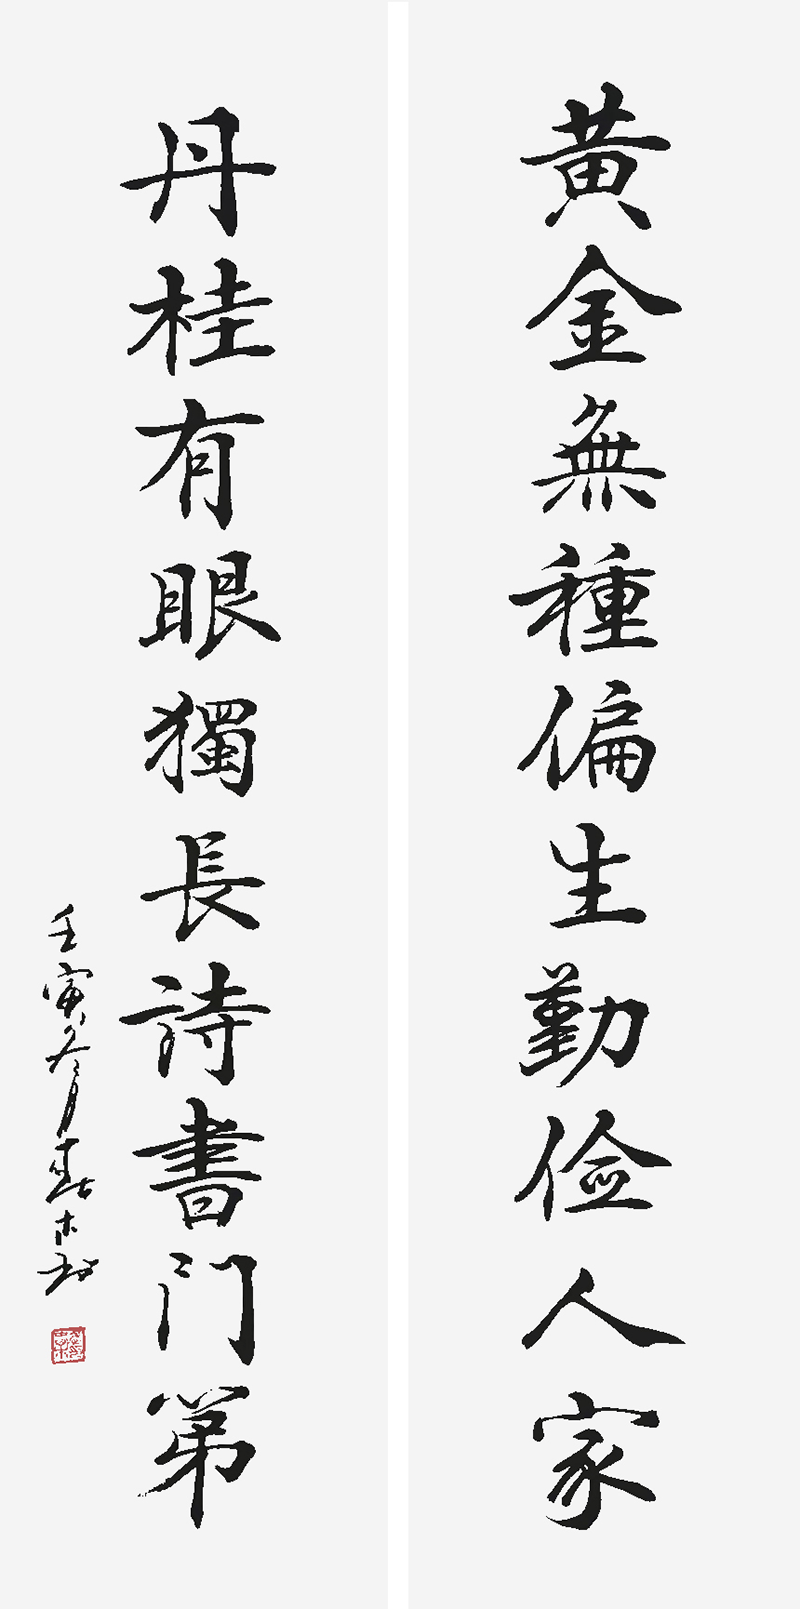 黄金無種偏生勤俭人家
丹桂有眼獨長詩書門第
壬寅冬月